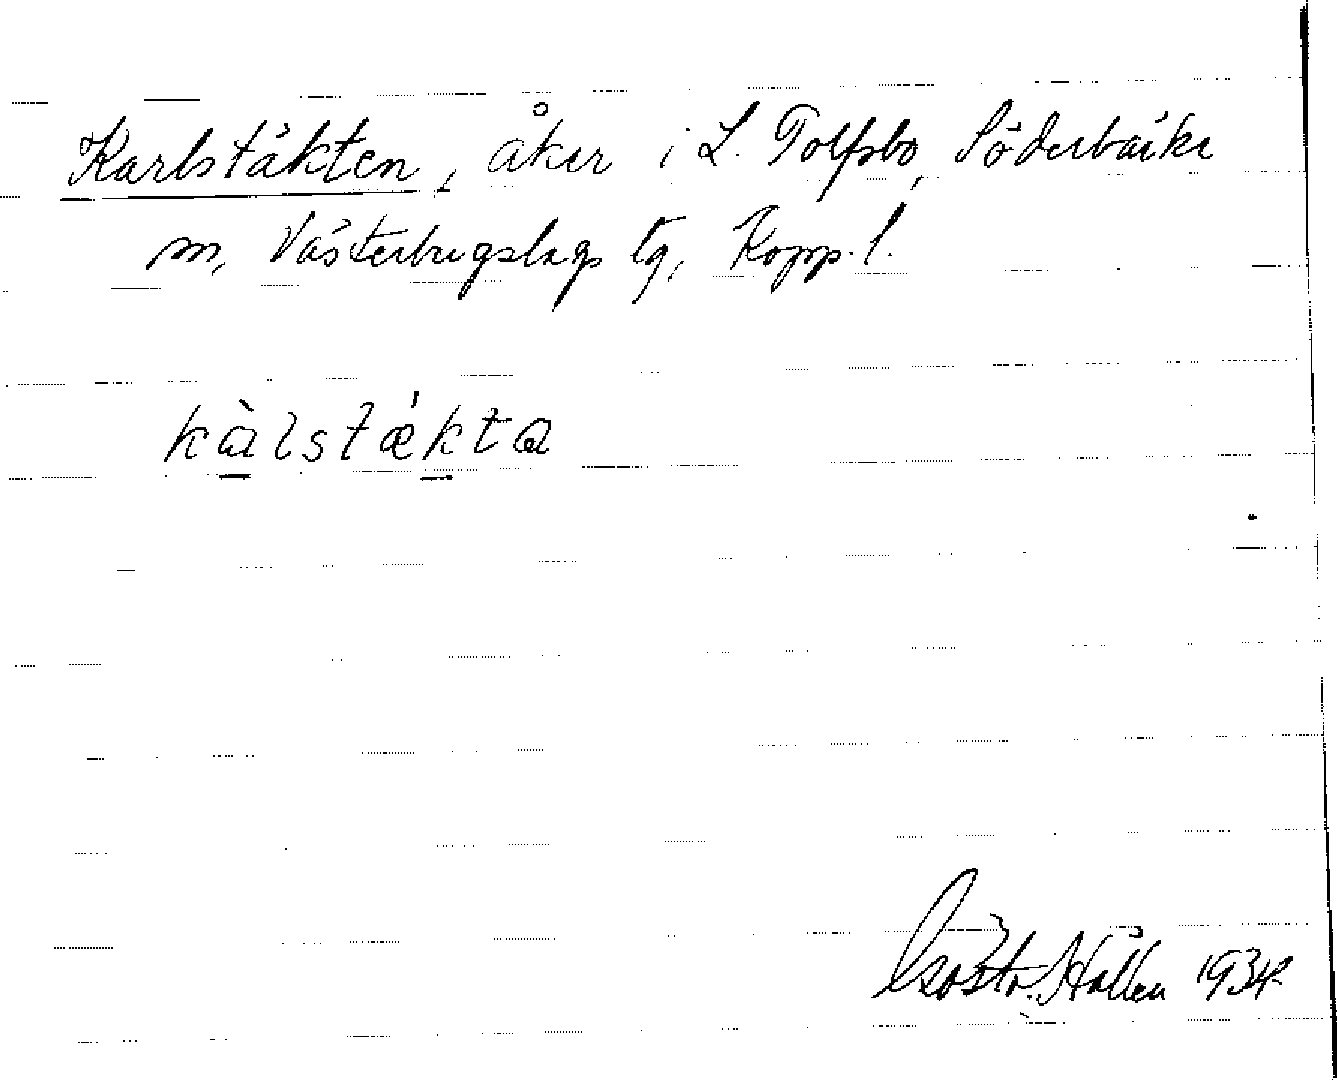 Karlstäkten, åker i L. Tolfsbo, Söderbärke
m, Västerbergslags tg, Kopp. l.
kàlstǽkta
Gösta Hållen 1934.